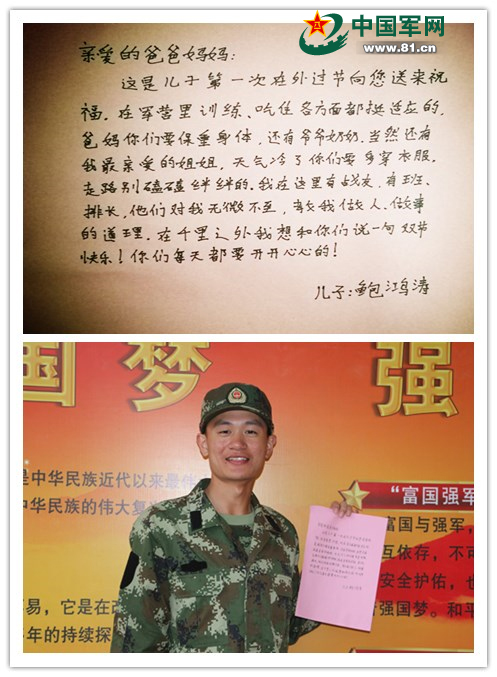 中国军网
www.81.cn
亲爱的爸爸妈妈：
这是儿子第一次在外过节向您送来祝
福。在军营里训练、吃住各方面都挺适应的，
爸妈你们要保重身体，还有爷爷奶奶，当然还有
我最亲爱的姐姐，天气冷了你们要多穿衣服，
走路别磕磕绊绊的。我在这里有战友，有班、
排长，他们对我无微不至，教我做人、做事
的道理。在千里之外我想和你们说一句双节
快乐！你们每天都要开开心心的！
儿子：鲍鸿涛
国梦 强
是中华民族近代以来最伟
中华民族的伟大复
易，它是在改
年的持续探
"富国强军
富国与强军，
互依存，不可
安全护佑，也
强国梦。和平